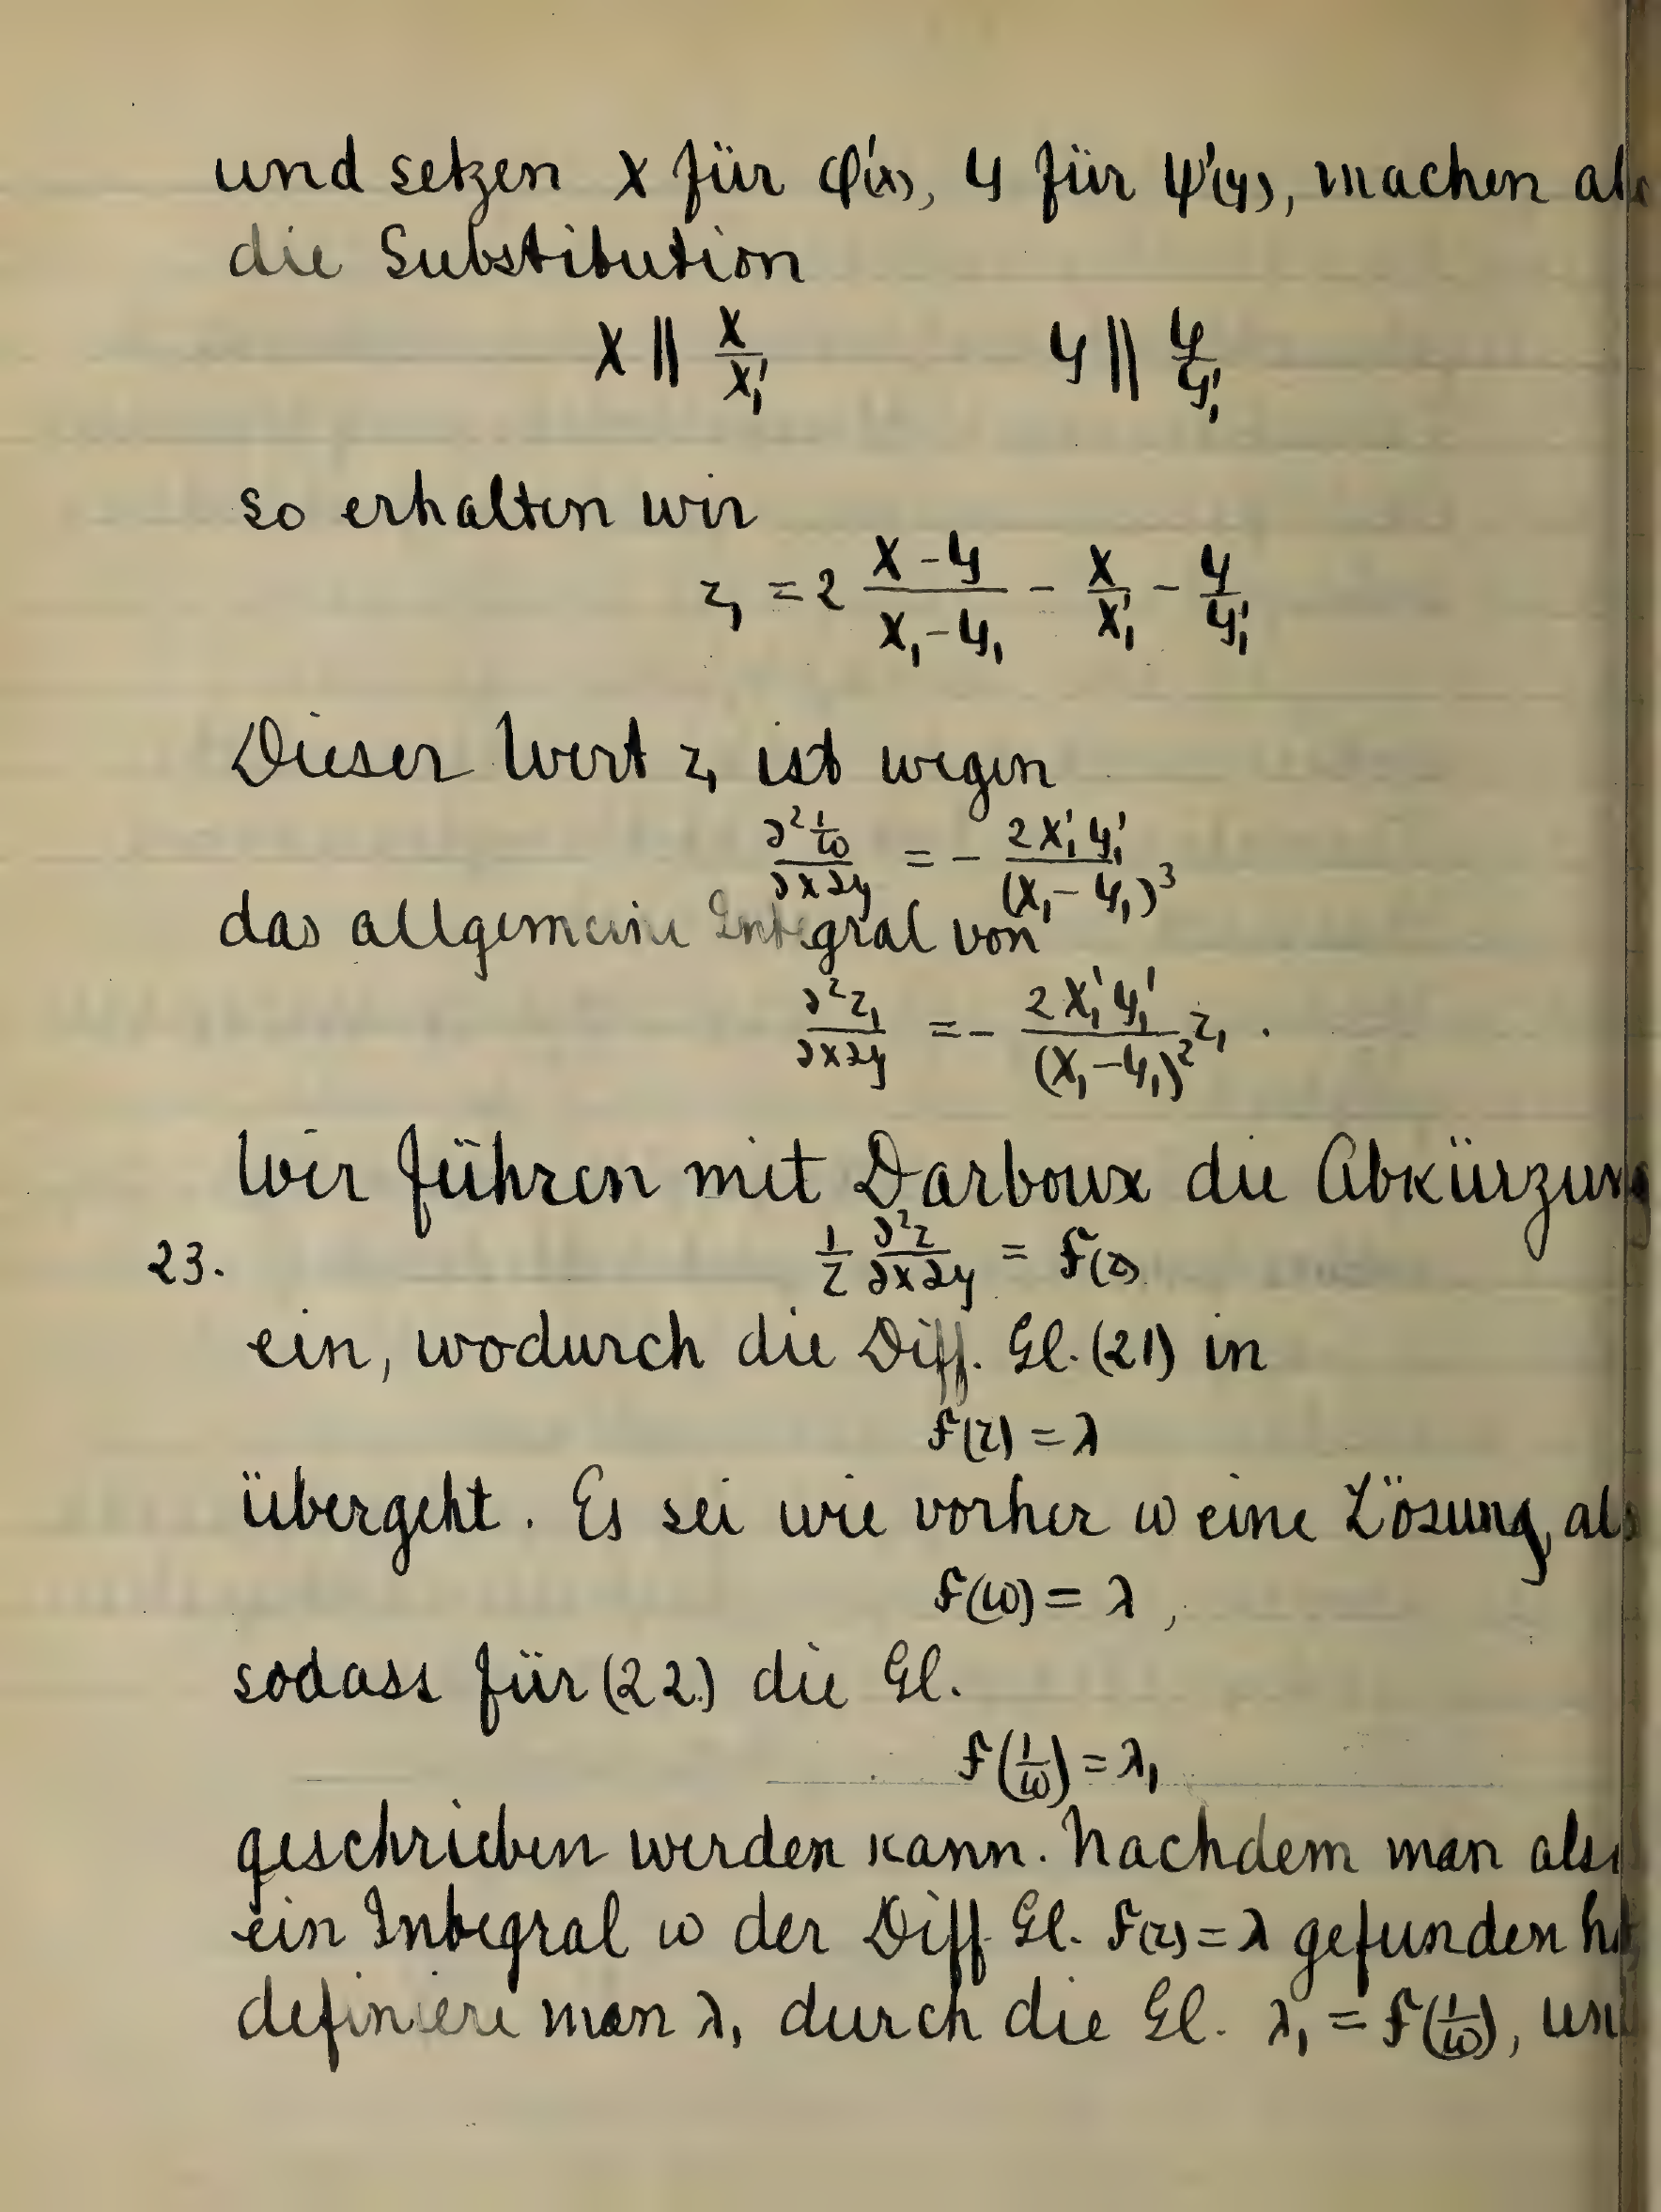 und setzen X für φ'(x), Y für ψ'(y), machen als
die Substitution
X || X/X₁' Y || Y/Y₁'
so erhalten wir
z₁ = 2 (X - Y)/(X₁ - Y₁) - X/X₁' - Y/Y₁'
Dieser Wert z₁ ist wegen
∂² 1/ω / ∂x∂y = - 2X₁'Y₁'/(X₁ - Y₁)³
das allgemeine Integral von
∂²z₁/∂x∂y = - 2X₁'Y₁'/(X₁ - Y₁)² z₁ .
Wir führen mit Darboux die Abkürzung
23. 1/z ∂²z/∂x∂y = F(z)
ein, wodurch die Diff. Gl. (21) in
F(z) = λ
übergeht. Es sei wie vorher ω eine Lösung, als
F(ω) = λ ,
sodass für (22) die Gl.
F(1/ω) = λ₁
geschrieben werden kann. Nachdem man als
ein Integral ω der Diff. Gl. F(z) = λ gefunden h
definiere man λ₁ durch die Gl. λ₁ = F(1/ω), un